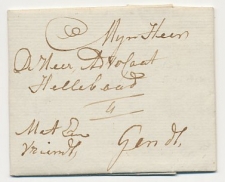 Myn Heer
Myn Heer Advokaat
Hellebaud
4
Met Een
vriendt,
Gendt.